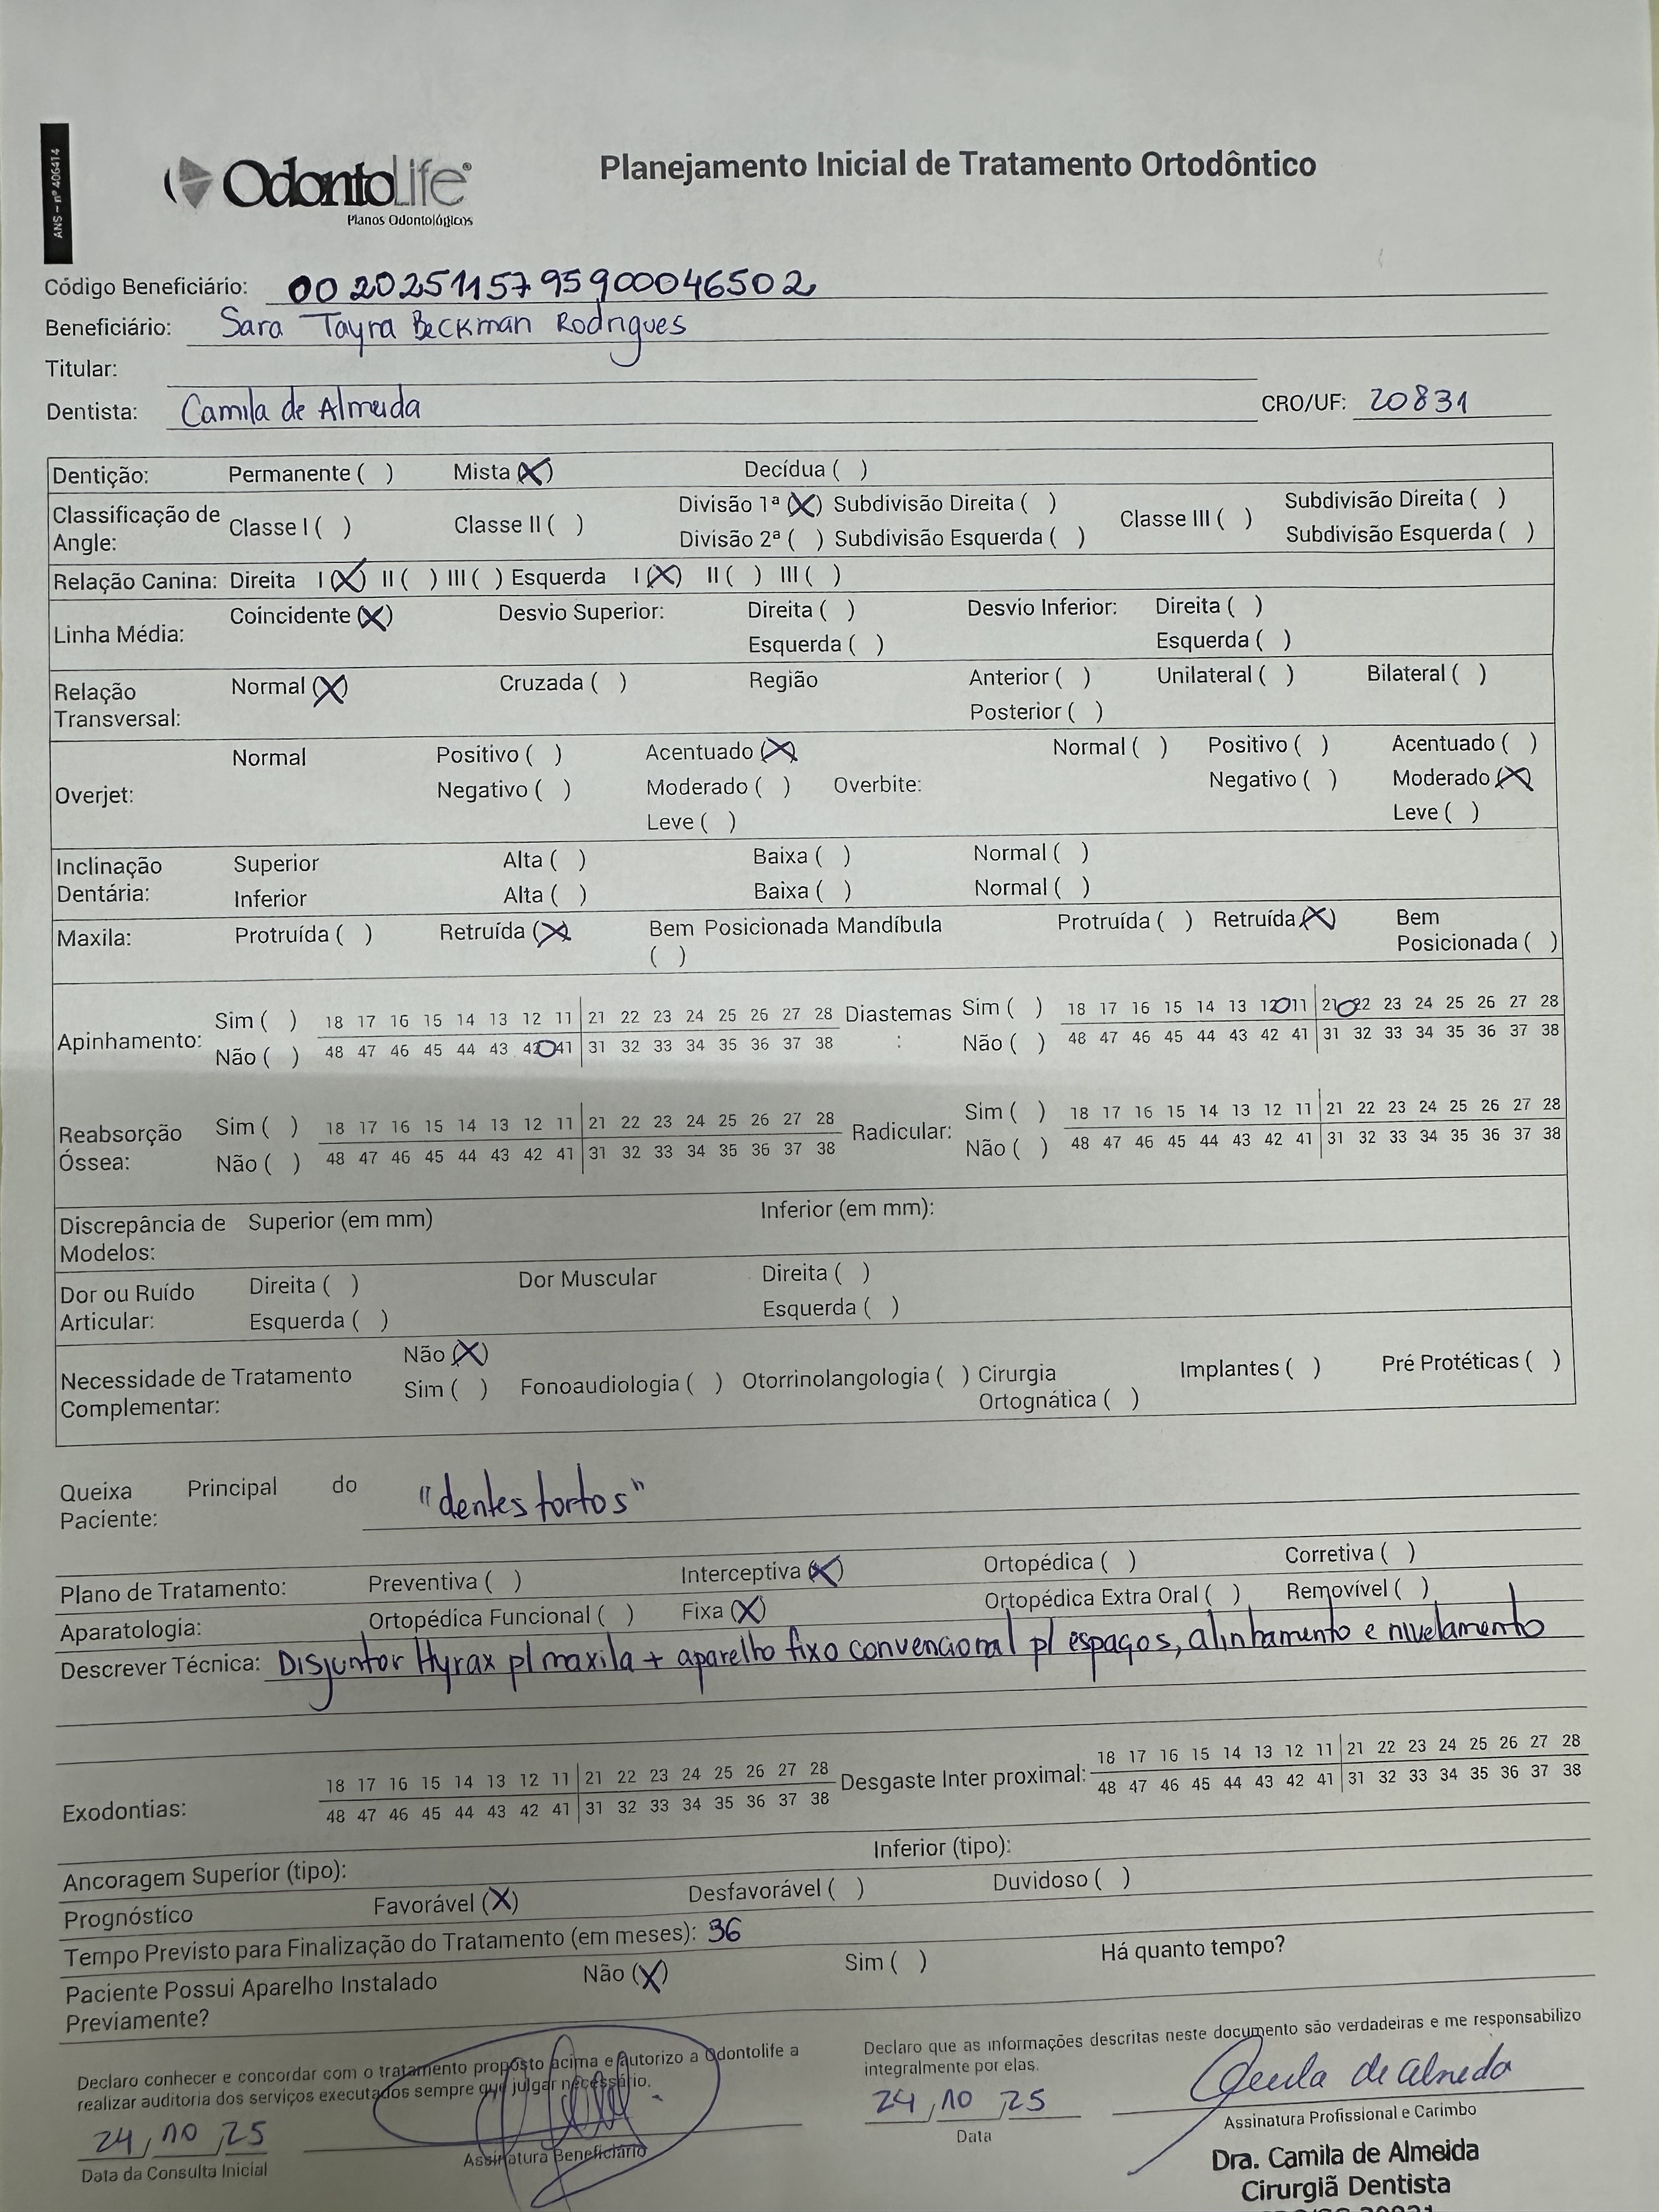 ANS – nº 406414
OdontoLife®
Planos Odontológicos
Planejamento Inicial de Tratamento Ortodôntico
Código Beneficiário: 00 2025115795900046502
Beneficiário: Sara Tayra Beckman Rodrigues
Titular:
Dentista: Camila de Almeida CRO/UF: 20831
Dentição: Permanente ( ) Mista (X) Decídua ( )
Classificação de Angle: Classe I ( ) Classe II ( ) Divisão 1ª (X) Subdivisão Direita ( ) Classe III ( ) Subdivisão Direita ( )
Divisão 2ª ( ) Subdivisão Esquerda ( ) Subdivisão Esquerda ( )
Relação Canina: Direita I (X) II ( ) III ( ) Esquerda I (X) II ( ) III ( )
Linha Média: Coincidente (X) Desvio Superior: Direita ( ) Desvio Inferior: Direita ( )
Esquerda ( ) Esquerda ( )
Relação Transversal: Normal (X) Cruzada ( ) Região Anterior ( ) Unilateral ( ) Bilateral ( )
Posterior ( )
Overjet: Normal Positivo ( ) Acentuado (X) Overbite: Normal ( ) Positivo ( ) Acentuado ( )
Negativo ( ) Moderado ( ) Negativo ( ) Moderado (X)
Leve ( ) Leve ( )
Inclinação Dentária: Superior Alta ( ) Baixa ( ) Normal ( )
Inferior Alta ( ) Baixa ( ) Normal ( )
Maxila: Protruída ( ) Retruída (X) Bem Posicionada ( ) Mandíbula Protruída ( ) Retruída (X) Bem Posicionada ( )
Apinhamento: Sim ( ) 18 17 16 15 14 13 12 11 21 22 23 24 25 26 27 28 Diastemas : Sim ( ) 18 17 16 15 14 13 12 11 21 22 23 24 25 26 27 28
Não ( ) 48 47 46 45 44 43 42 41 31 32 33 34 35 36 37 38 Não ( ) 48 47 46 45 44 43 42 41 31 32 33 34 35 36 37 38
Reabsorção Óssea: Sim ( ) 18 17 16 15 14 13 12 11 21 22 23 24 25 26 27 28 Radicular: Sim ( ) 18 17 16 15 14 13 12 11 21 22 23 24 25 26 27 28
Não ( ) 48 47 46 45 44 43 42 41 31 32 33 34 35 36 37 38 Não ( ) 48 47 46 45 44 43 42 41 31 32 33 34 35 36 37 38
Discrepância de Modelos: Superior (em mm) Inferior (em mm):
Dor ou Ruído Articular: Direita ( ) Dor Muscular Direita ( )
Esquerda ( ) Esquerda ( )
Necessidade de Tratamento Complementar: Não (X)
Sim ( ) Fonoaudiologia ( ) Otorrinolangologia ( ) Cirurgia Ortognática ( ) Implantes ( ) Pré Protéticas ( )
Queixa Principal do Paciente: "dentes tortos"
Plano de Tratamento: Preventiva ( ) Interceptiva (X) Ortopédica ( ) Corretiva ( )
Aparatologia: Ortopédica Funcional ( ) Fixa (X) Ortopédica Extra Oral ( ) Removível ( )
Descrever Técnica: Disjuntor Hyrax p/ maxila + aparelho fixo convencional p/ espaços, alinhamento e nivelamento
Exodontias: 18 17 16 15 14 13 12 11 21 22 23 24 25 26 27 28 Desgaste Inter proximal: 18 17 16 15 14 13 12 11 21 22 23 24 25 26 27 28
48 47 46 45 44 43 42 41 31 32 33 34 35 36 37 38 48 47 46 45 44 43 42 41 31 32 33 34 35 36 37 38
Ancoragem Superior (tipo): Inferior (tipo):
Prognóstico Favorável (X) Desfavorável ( ) Duvidoso ( )
Tempo Previsto para Finalização do Tratamento (em meses): 36
Paciente Possui Aparelho Instalado Previamente? Não (X) Sim ( ) Há quanto tempo?
Declaro conhecer e concordar com o tratamento proposto acima e autorizo a Odontolife a
realizar auditoria dos serviços executados sempre que julgar necessário.
24/10/25
Data da Consulta Inicial
Assinatura Beneficiário
Declaro que as informações descritas neste documento são verdadeiras e me responsabilizo
integralmente por elas.
24/10/25
Data
de Almeida
Assinatura Profissional e Carimbo
Dra. Camila de Almeida
Cirurgiã Dentista